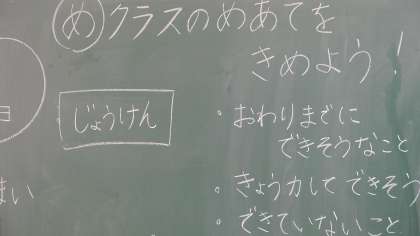 め クラスのめあてを
きめよう!
じょうけん
・おわりまでに
できそうなこと
・きょう力して できそう
・できていないこと